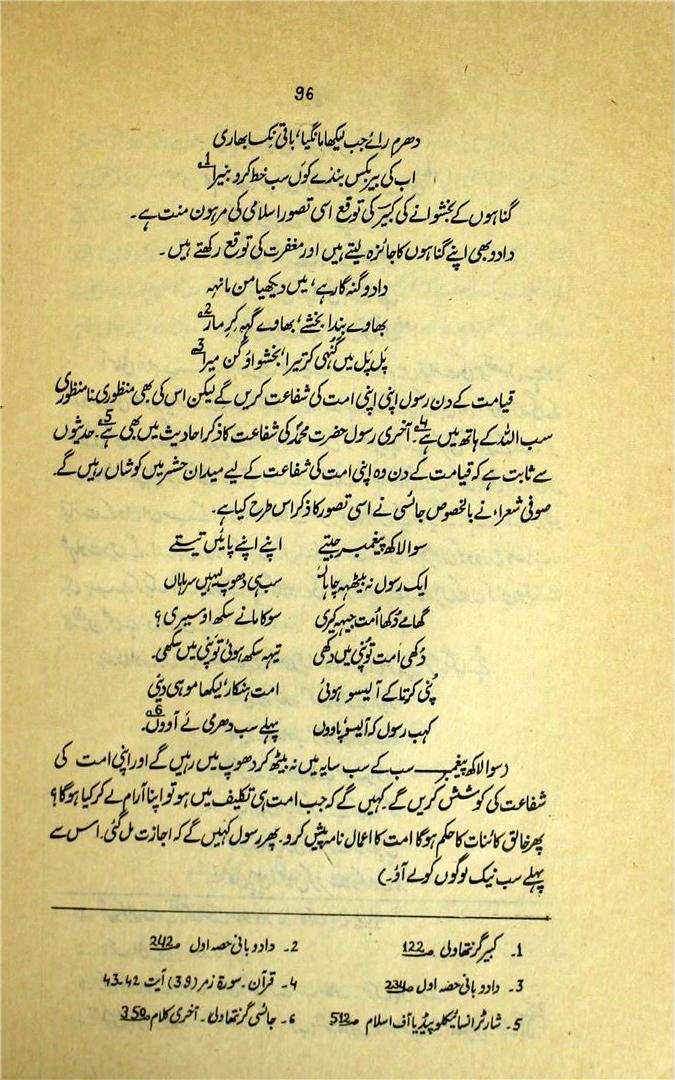 96
دھرم رائے جب لیکھا مانگیا، باقی نکسا بھاری
اب کی بیر بکس بندے کوں سب خط کرد بنیرا 1
گناہوں کے بخشوانے کی کبیر کی توقع اسی تصور اسلامی کی مرہون منت ہے۔
دادو بھی اپنے گناہوں کا جائزہ لیتے ہیں اور مغفرت کی توقع رکھتے ہیں۔
دادو گنہ گار ہے، میں دیکھیا من مانہہ
بھاوے بندا بخشے، بھاوے گہہ کر مار 2
پل پل میں گنہی کر تیرا، بخشو اوگن میرا 3
قیامت کے دن رسول اپنی اپنی امت کی شفاعت کریں گے لیکن اس کی بھی منظوری نامنظوری
سب اللہ کے ہاتھ میں ہے 4۔ آخری رسول حضرت محمد کی شفاعت کا ذکر احادیث میں بھی ہے 5۔ حدیثوں
سے ثابت ہے کہ قیامت کے دن وہ اپنی امت کی شفاعت کے لیے میدان حشر میں کوشاں رہیں گے۔
صوفی شعراء نے بالخصوص جائسی نے اسی تصور کا ذکر اس طرح کیا ہے۔
سوا لاکھ پیغمبر جیتے اپنے اپنے پایئں تیتے
ایک رسول نہ بیٹھہہ چاہاں سب ہی دھوپ لیہیں سرماہاں
گھامے دکھا امت جیہہ کیری سو کا مانے سکھ اوسیری؟
دکھی امت تو پنی میں دکھی تیہہ سکھ ہوئی تو پنی میں سکھی۔
پنی کرتا کے آلیسو ہوئی امت ہنکار، لیکھا موہی دیئی
کہب رسول کہ آلیسو پاووں پہلے سب دھرمی لے آووں۔ 6
(سوا لاکھ پیغمبر۔۔۔ سب کے سب سایہ میں نہ بیٹھ کر دھوپ میں رہیں گے اور اپنی امت کی
شفاعت کی کوشش کریں گے۔ کہیں گے کہ جب امت ہی تکلیف میں ہو تو اپنا آرام لے کر کیا ہوگا؟
پھر خالق کائنات کا حکم ہوگا امت کا اعمال نامہ پیش کرو۔ پھر رسول کہیں گے کہ اجازت مل گئی۔ اس سے
پہلے سب نیک لوگوں کو لے آؤ۔)
1۔ کبیر گرنتھاولی صہ 122 2۔ دادو بانی حصہ اول صہ 242
3۔ دادو بانی حصہ اول صہ 234 4۔ قرآن۔ سورۃ زمر (39) آیت 42-43
5۔ شارٹر انسائیکلوپیڈیا آف اسلام صہ 512 6۔ جائسی گرنتھاولی۔ آخری کلام صہ 350